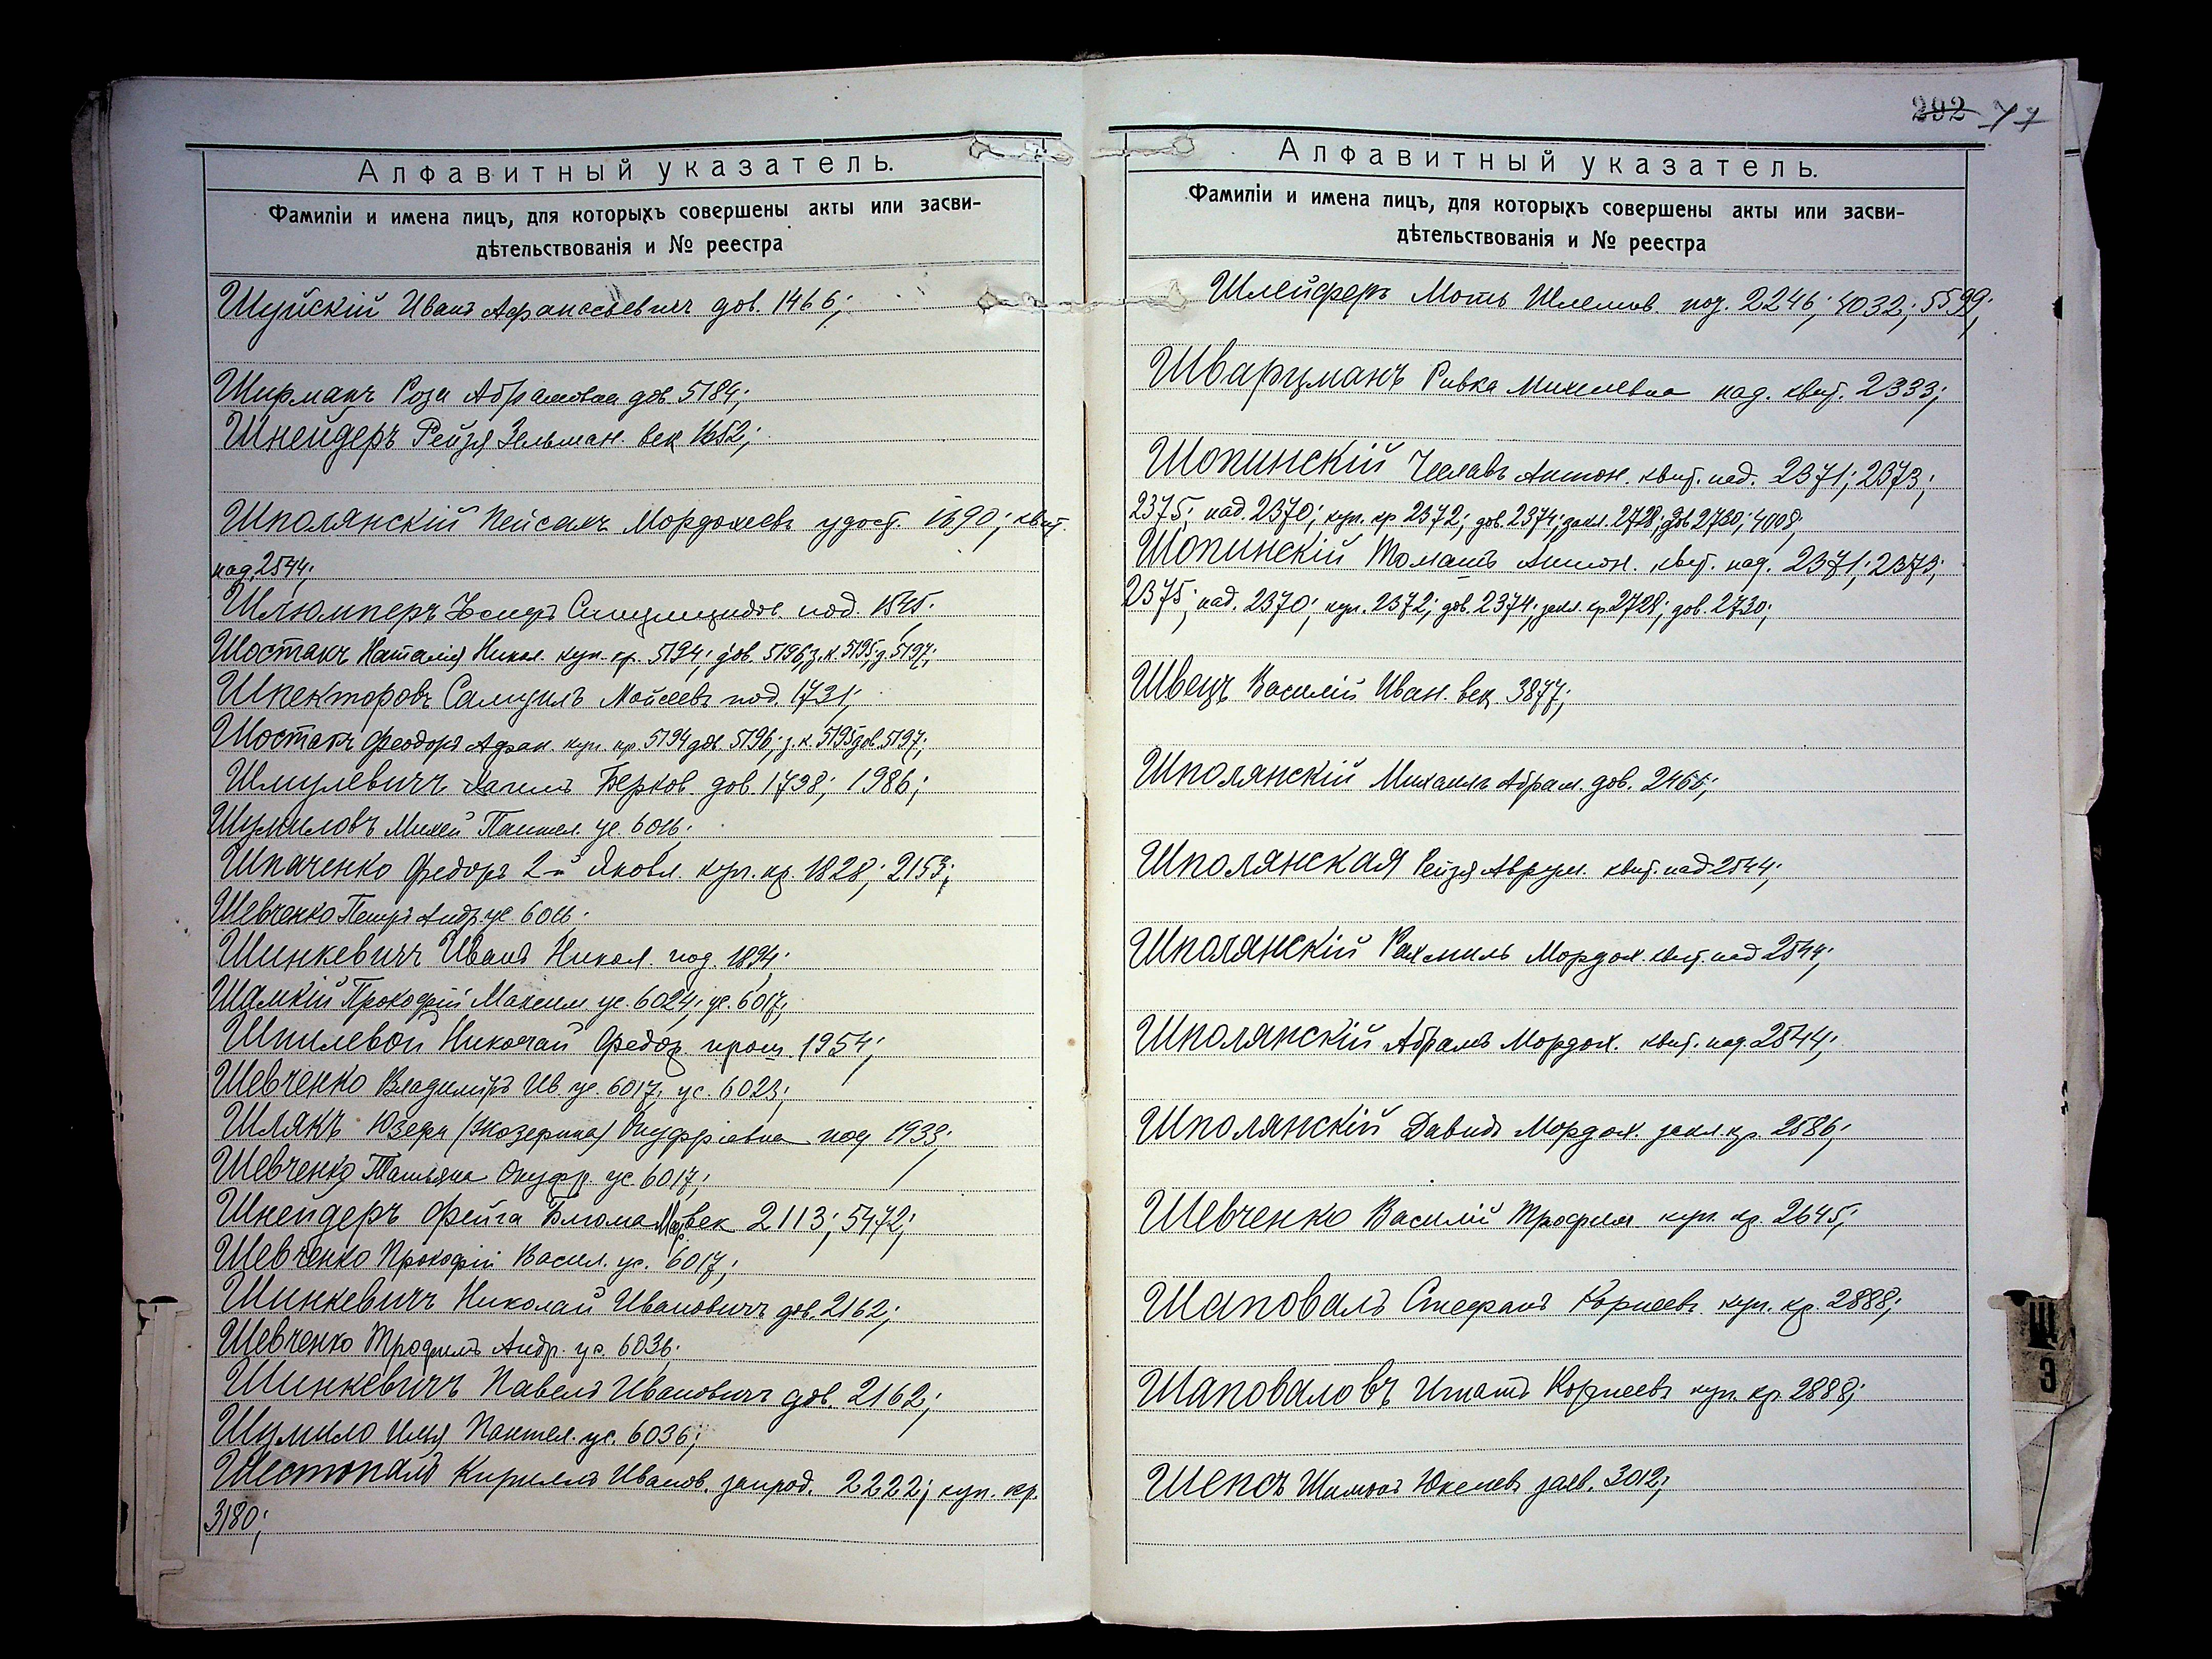 Алфавитный указатель.
Фамиліи и имена лицъ, для которыхъ совершены акты или засви-
дѣтельствованія и № реестра
Шуйскій Иванъ Афанасьевичъ дов. 1466;
Ширманъ Роза Абрамовна дов. 5184;
Шнейдеръ Рейзя Зельман. век 1652;
Шполянскій Пейсахъ Мордохеевъ удост. 1690; квит.
над. 2544;
Шлюмперъ под. 1545;
Шостакъ Наталія Никол. куп. кр. 5194; дов. 5196; з.к. 5195; д. 5197;
Шпекторовъ Самуилъ Мойсеевъ под. 1731;
Шостакъ Феодоръ Афан. куп. кр. 5194 дов. 5196; з.к. 5195 дов. 5197;
Шмулевичъ Берков. дов. 1738; 1986;
Шумиловъ Михей Пантел. ус. 6016;
Шпаченко Федоръ 2-й Яковл. куп. кр. 1828; 2153;
Шевченко Петръ Андр. ус. 6016;
Шинкевичъ Иванъ Никол. под. 1894;
Шамкій Прокофій Максим. ус. 6024; ус. 6017;
Шпилевой Николай Федор. прош. 1954;
Шевченко Владиміръ Ив. ус. 6017; ус. 6023;
Шлякъ Юзефа (Жозефина) Онуфріевна под 1933;
Шевченко Татьяна Онуфр. ус. 6017;
Шнейдеръ Фейга Блюма Мор. век 2113; 5472;
Шевченко Прокофій Васил. ус. 6017;
Шинкевичъ Николай Ивановичъ дов. 2162;
Шевченко Трофимъ Андр. ус. 6036;
Шинкевичъ Павелъ Ивановичъ дов. 2162;
Шумило Илья Пантел. ус. 6036;
Шестопалъ Кириллъ Иванов. запрод. 2222; куп. кр.
3180;
292 77
Алфавитный указатель.
Фамиліи и имена лицъ, для которыхъ совершены акты или засви-
дѣтельствованія и № реестра
Шлейферъ Мотъ Шлемов. 2246; 4032; 5599;
Шварцманъ Ривка Михелевна над. квит. 2333;
Шопинскій Чеславъ Антон. квит. над. 2371; 2373;
2375; над. 2370; куп. кр 2372; дов. 2374; закл. 2728; дов 2730; 4008;
Шопинскій Томашъ Антон. квит. над. 2371; 2373;
2375; над. 2370; куп. 2372; дов. 2374; закл. кр. 2728; дов. 2730;
Швецъ Василій Иван. век. 3877;
Шполянскій Михаилъ Абрам. дов. 2465;
Шполянская Рейзя Аврум. квит. над 2544;
Шполянскій Рахмиль Мордох. квит. над 2544;
Шполянскій Абрамъ Мордох. квит. над. 2544;
Шполянскій Давидъ Мордох. закл. кр. 2586;
Шевченко Василій Трофим куп. кр. 2645;
Шаповалъ Стефанъ Корнеевъ куп. кр. 2888;
Шаповаловъ Игнатъ Корнеевъ куп. кр. 2888;
Шепсъ Шимонъ заяв. 3012;
Щ
Э